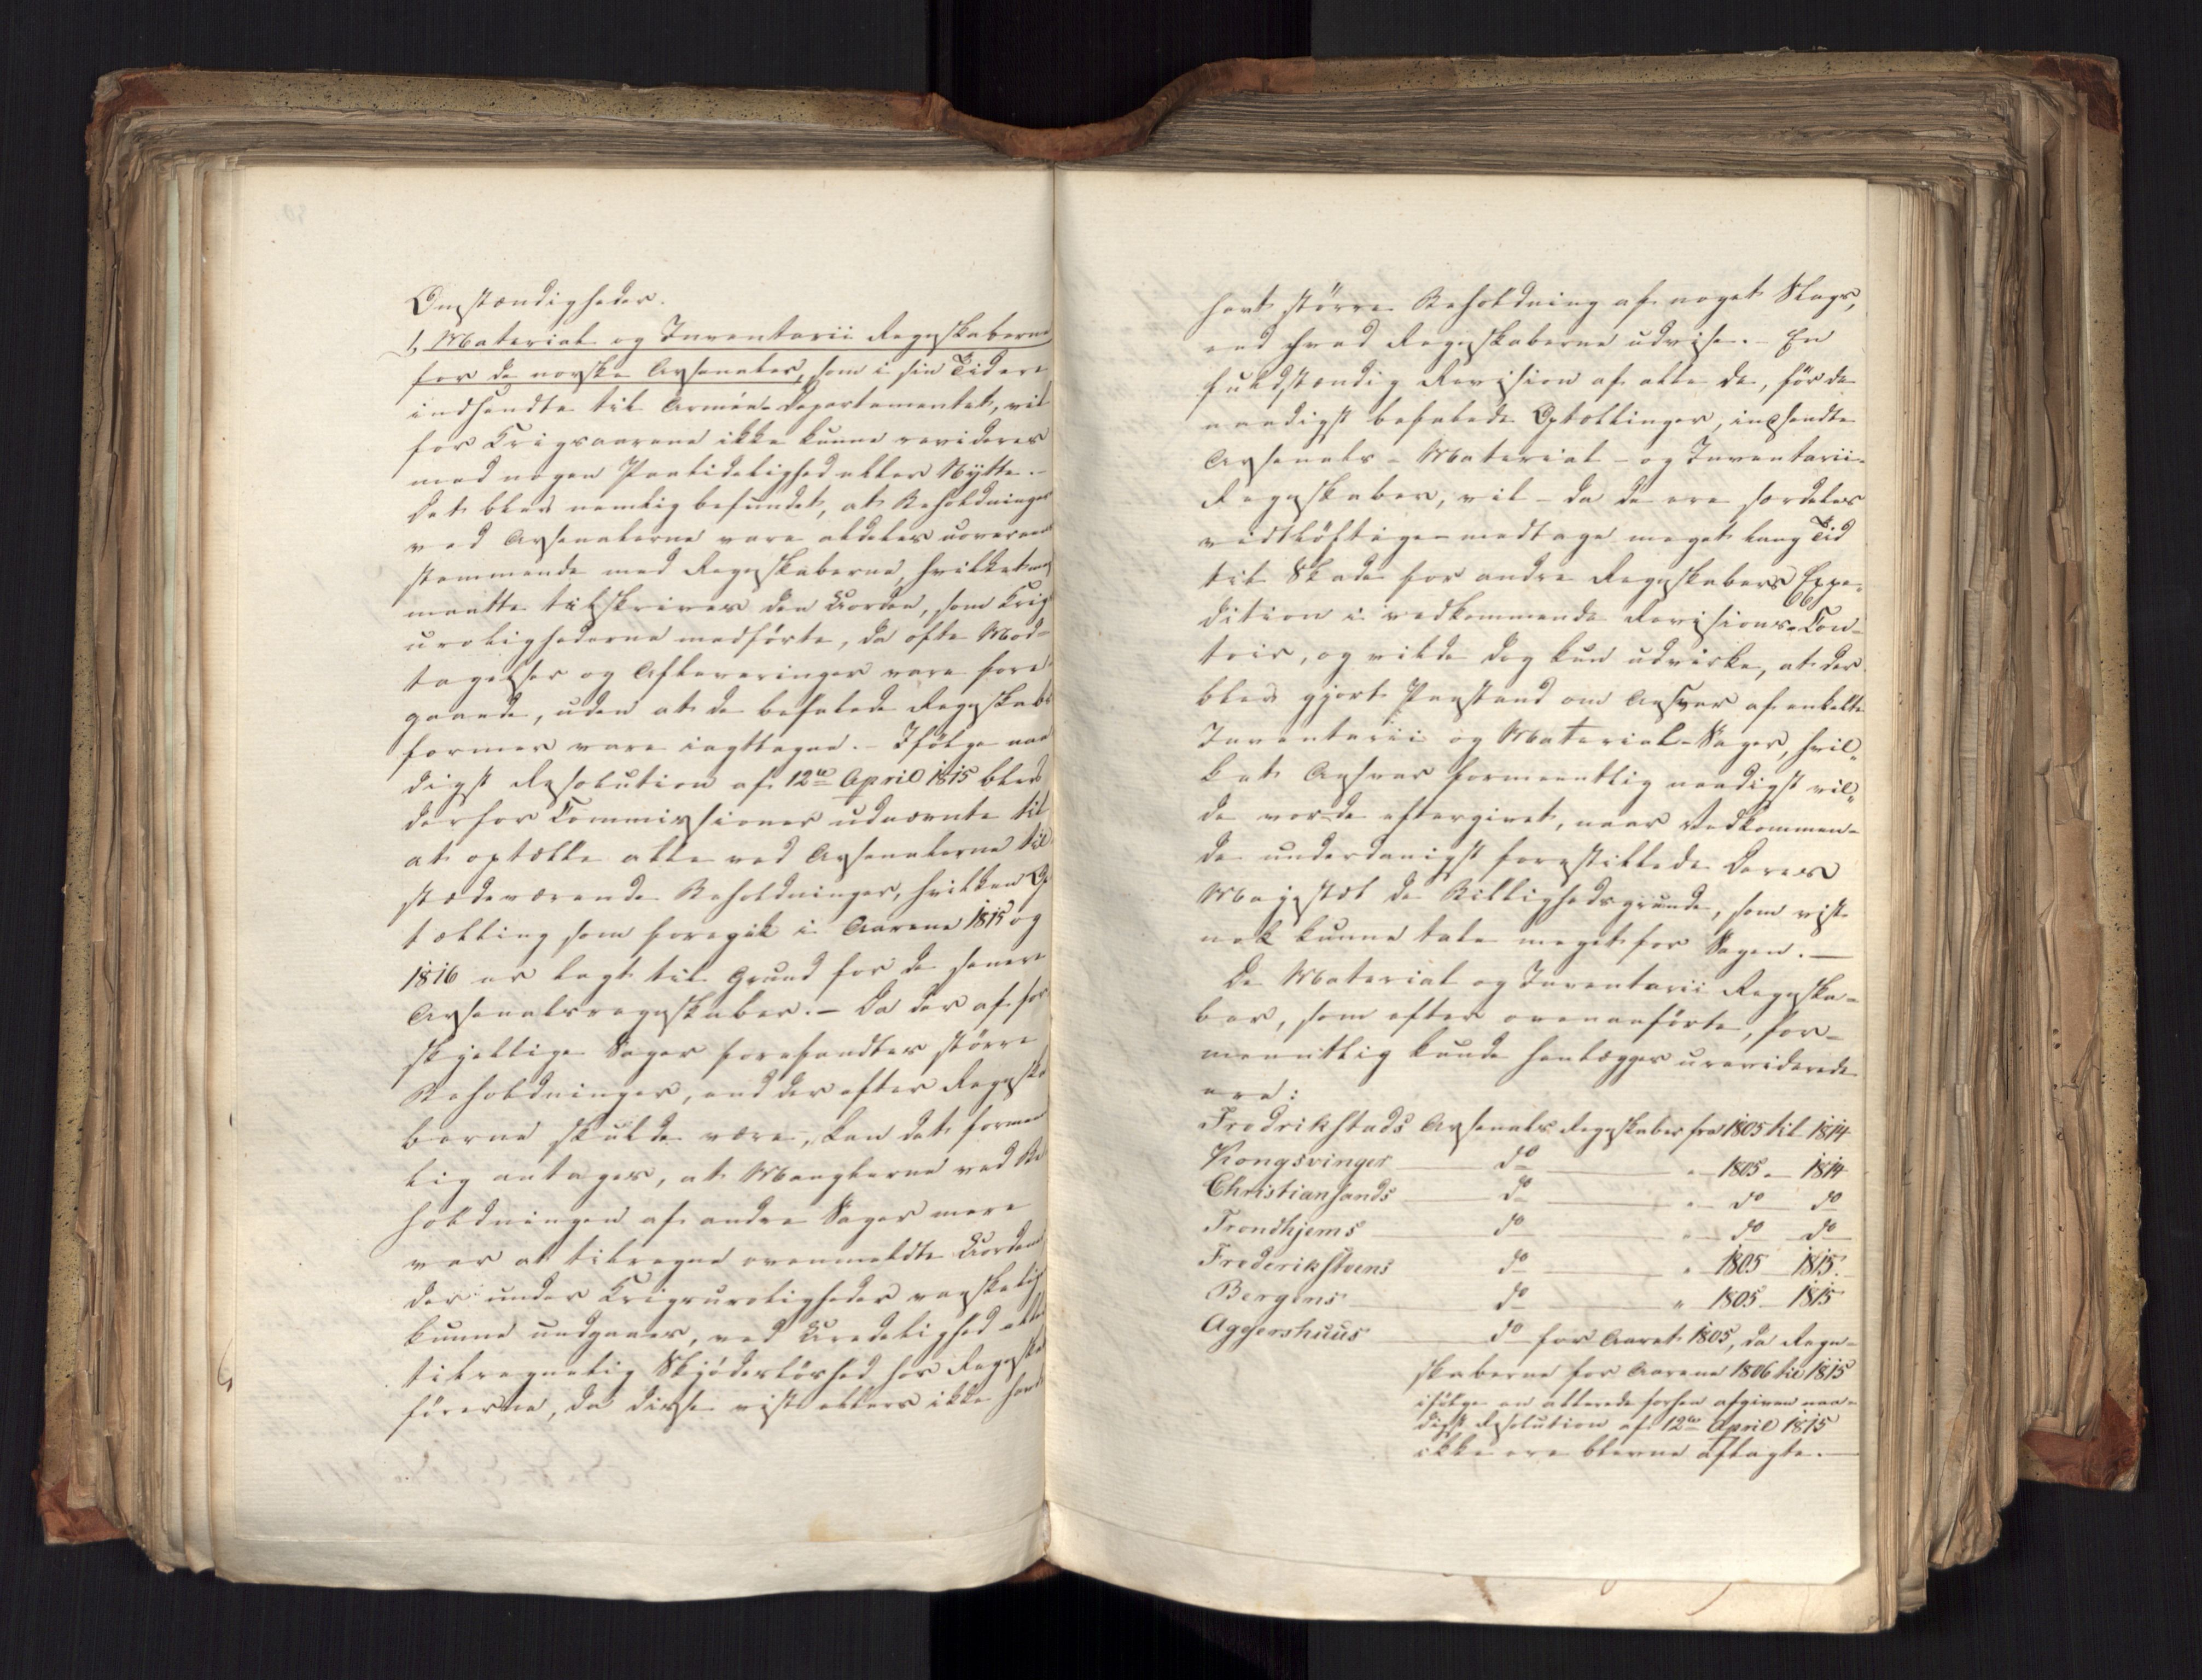 Omstændigheder.
1, Material og Inventarii Regnskaberne
for de norske Arsenaler, som i sin Tid ere
indsendte til Armée-Departementet, vil
for Krigsaarene ikke kunne revideres
med nogen Paalidelighed eller Nytte. –
Det blev nemlig befundet, at Beholdninger
ved Arsenalerne vare aldeles uoverens
stemmende med Regnskaberne, hvilket
maatte tilskrives den Uorden, som Krigs
urolighederne medførte, da ofte Mod-
tagelser og Afleveringer vare fore
gaaede, uden at de befalede Regnskabs
former vare iagttagne. – Ifølge naa
digst Resolution af 12te April 1815 blev
derfor Commissioner udnævnte til
at optælle alle ved Arsenalerne til
stædeværende Beholdninger, hvilken Op
tælling som foregik i Aarene 1815 og
1816 er lagt til Grund for de senere
Arsenalsregnskaber. – Da der af for
skjellige Sager forefandtes større
Beholdninger, end der efter Regnska
berne skulde være, kan det formeent
lig antages, at Manglerne ved Be
holdningen af andre Sager mere
var at tilregne ovenmeldte Uorden
der under Krigsuroligheder vanskelig
kunne undgaaes, end Uredelighed eller
tilregnelig Skjødesløshed hos Regnskabs
førerne, da disse vist ellers ikke havde
havt større Beholdning af noget Slags,
end hvad Regnskaberne udvise. – En
fuldstændig Revision af alle de, før de
naadigst befalede Optællinger, indsendte
Arsenals – Material – og Inventarii-
Regnskaber, vil – da de ere særdeles
vidtløftige – medtage meget lang Tid
til Skade for andre Regnskabers Expe-
dition i vedkommende Revisions-Con-
toir, og vilde dog kun udvirke, at der
blev gjort Paastand om Ansvar af enkelte
Inventarii og Material-Sager, hvil-
ket Ansvar formeentlig naadigst vil-
de vorde eftergivet, naar Vedkommen-
de underdanigst forestillede Deres
Majestæt de Billighedsgrunde, som vist
nok kunne tale meget for Sagen. –
De Material og Inventarii Regnska-
ber, som efter ovenanførte, for-
meentlig kunde henlægges ureviderede
ere:
Fredrikstads Arsenals Regnskaber fra 1805 til 1814
Kongsvinger do " 1805 - 1814
Christiansands do " do do
Trondhjems do " do do
Frederikssteens do " 1805 1815.
Bergens do " 1805 - 1815
Aggershuus do for Aaret 1805, da Regn-
skaberne for Aarene 1806 til 1815
ifølge en allerede forhen afgiven naa-
digst Resolution af 12te April 1815
ikke ere blevne aflagte. –